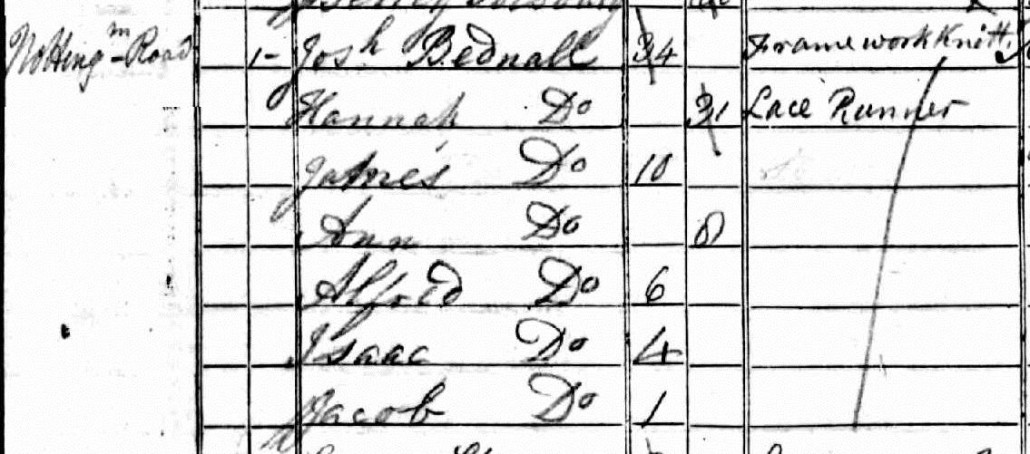 Notting^m Road 1 Jos^h Bednall 34 Framework Knitt
Hannah Do 31 Lace Runner
James Do 10
Ann Do 8
Alfred Do 6
Isaac Do 4
Jacob Do 1